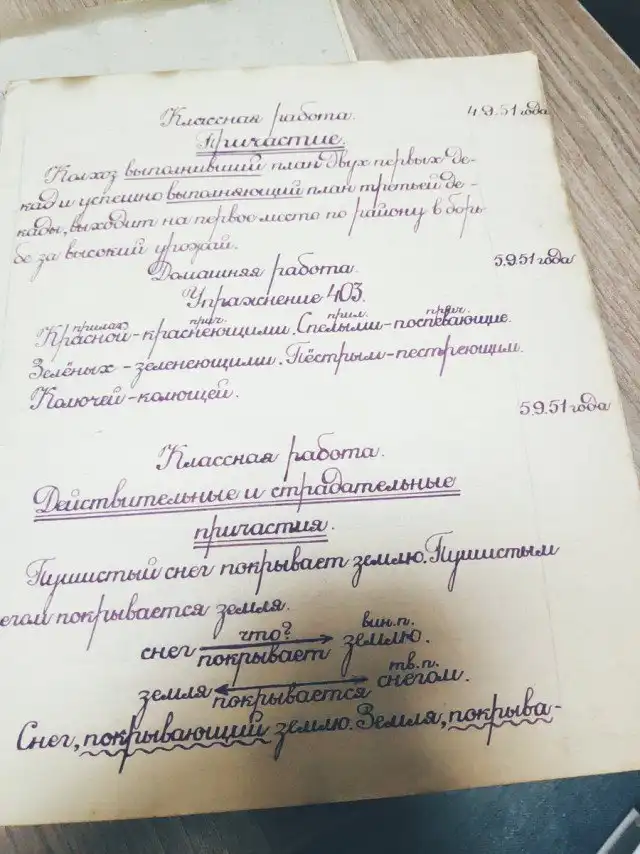 Классная работа. 4.9.51 года
Причастие.
Колхоз выполнивший план двух первых де-
кад и успешно выполняющий план третьей де-
кады, выходит на первое место по району в борь-
бе за высокий урожай.
Домашняя работа. 5.9.51 года
Упражнение 403.
прилаг. прич. прил. прич.
Красной-краснеющими. Спелыми-поспевающие.
Зелёных - зеленеющими. Пёстрым-пестреющим.
Колючей-колющей.
5.9.51 года
Классная работа.
Действительные и страдательные
причастия.
Пушистый снег покрывает землю. Пушистым
снегом покрывается земля.
снег что? покрывает вин.п. землю.
земля покрывается тв.п. снегом.
Снег, покрывающий землю. Земля, покрыва-